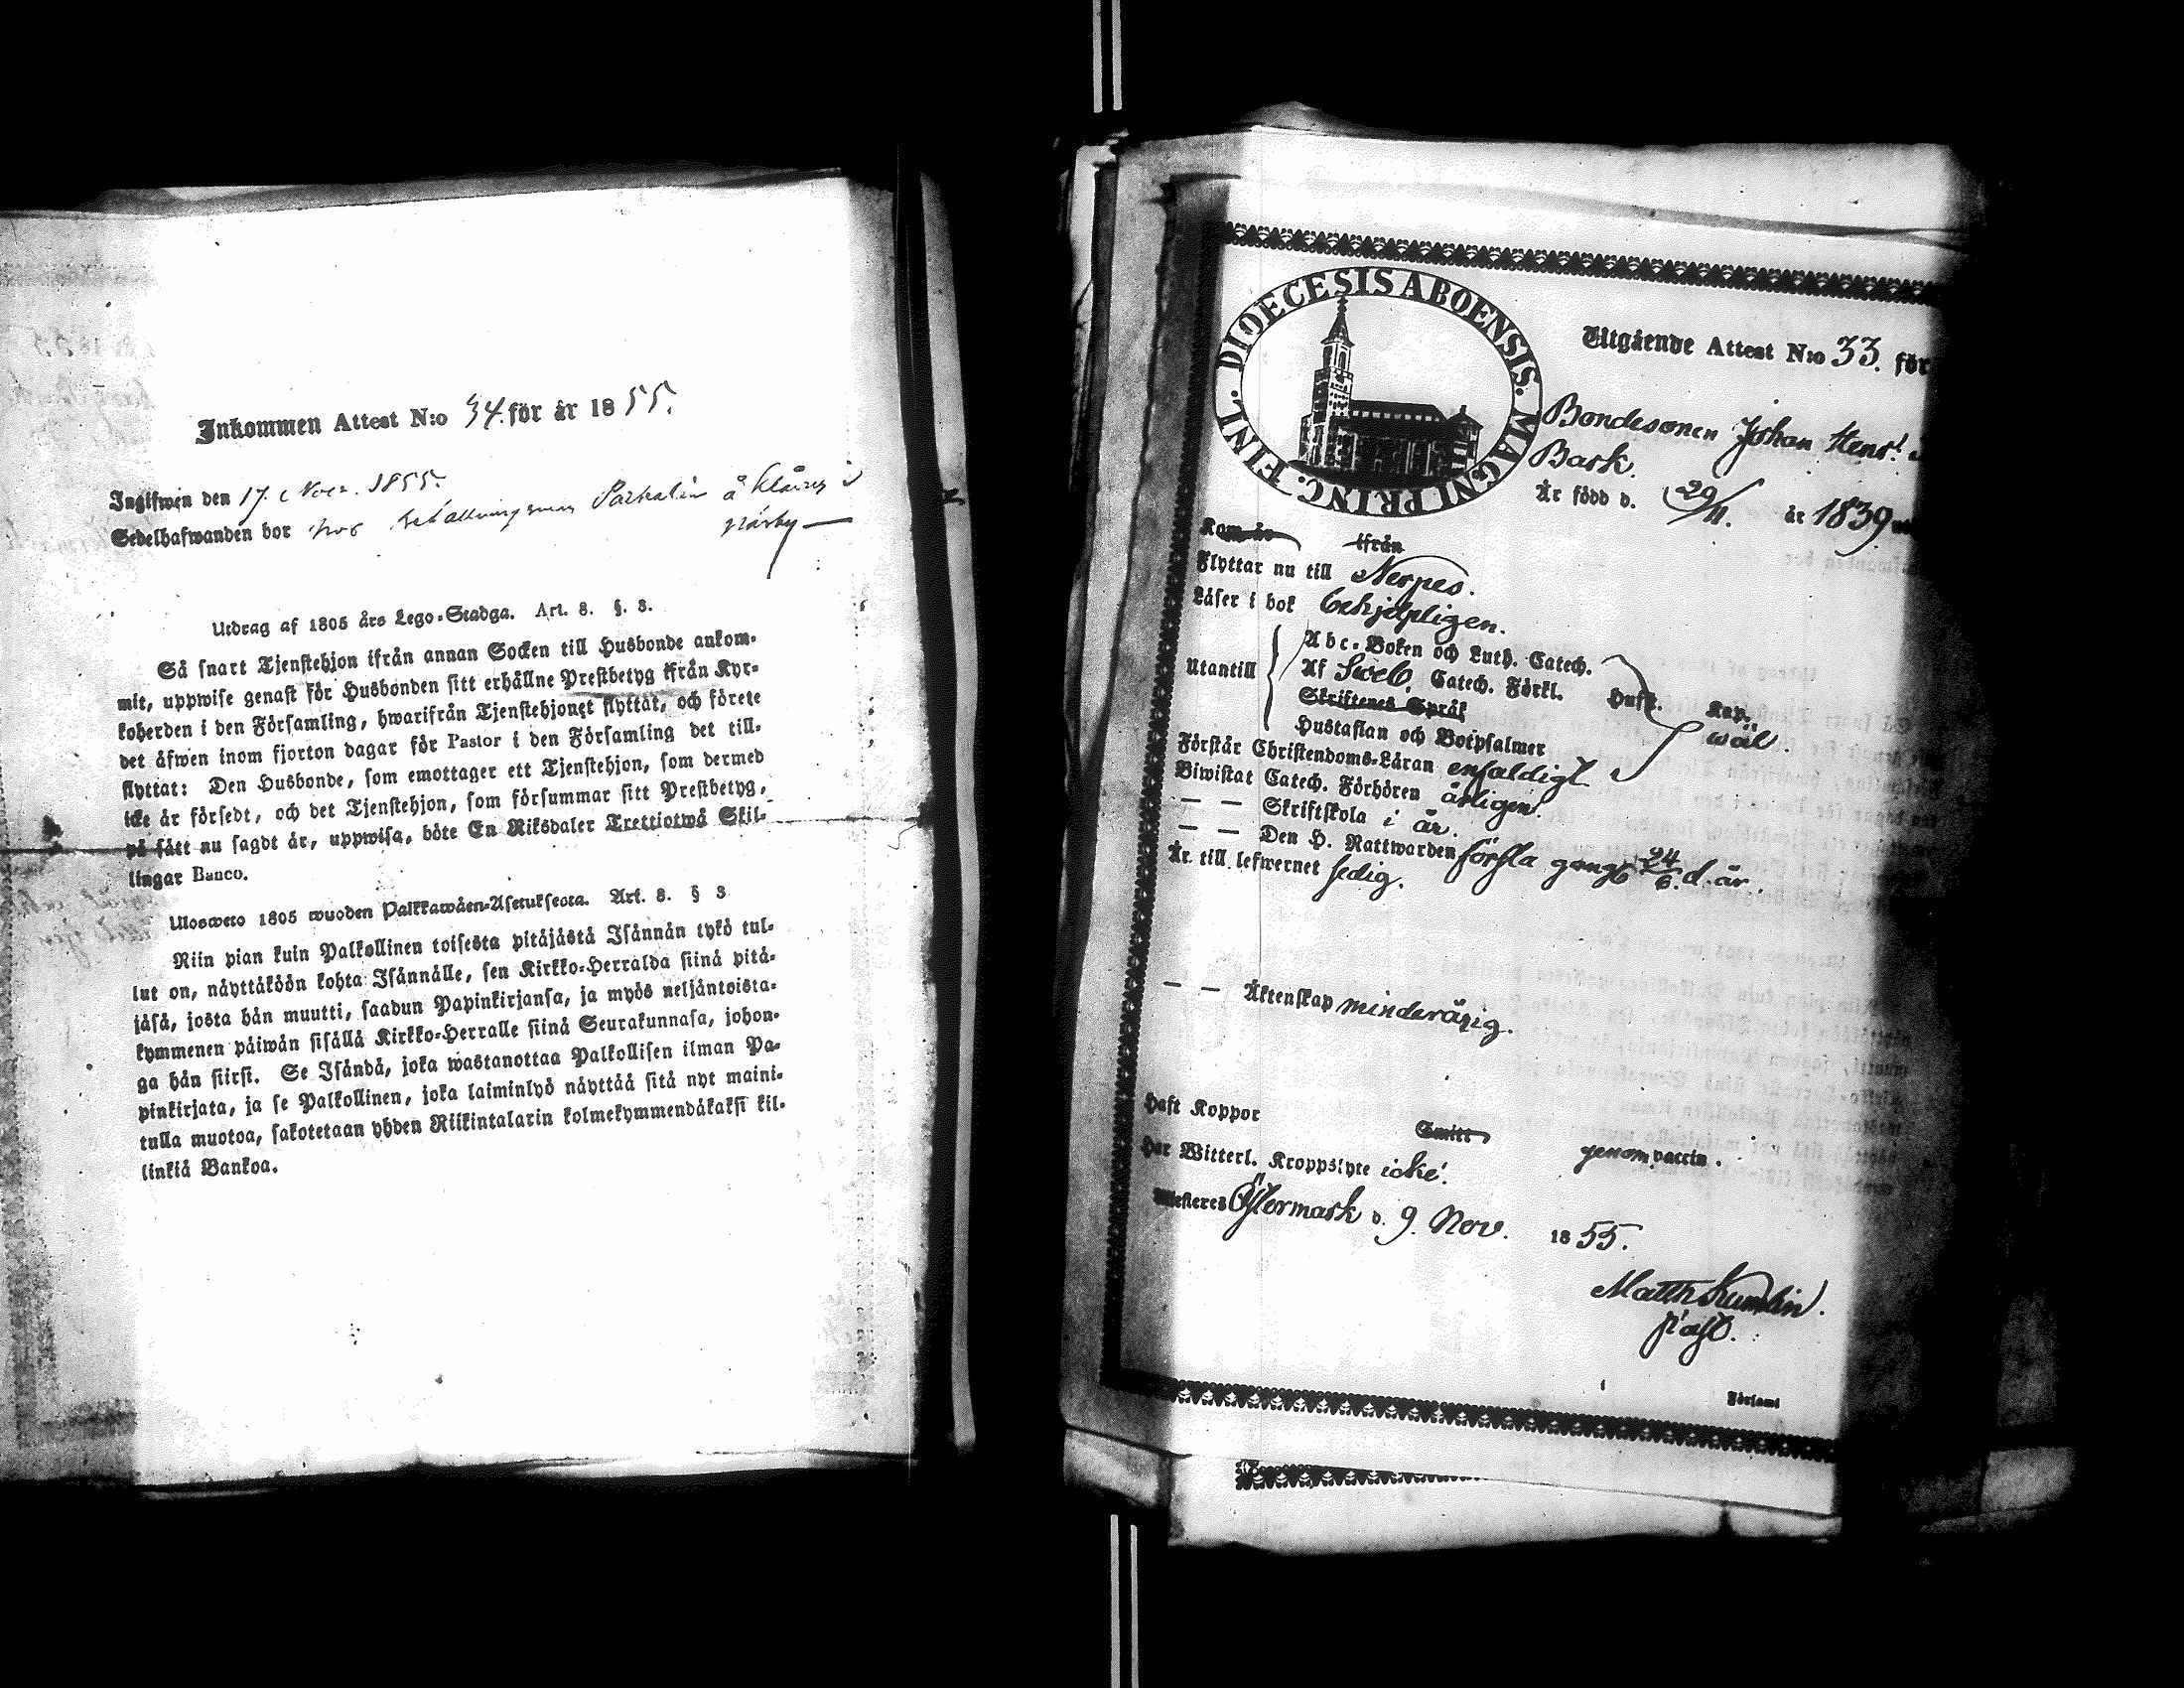 Inkommen Attest N:o 34. för år 1855.
Ingifwen den 17. Nov. 1855.
Sedelhafwanden bor hos å i
Utdrag af 1805 års Lego-Stadga. Art. 8. §. 3.
Så snart Tjenstehjon ifrån annan Socken till Husbonde ankom-
mit, uppwise genast för Husbonden sitt erhållne Prestbetyg ifrån Kyr-
koherden i den Församling, hwarifrån Tjenstehjonet flyttat, och förete
det äfwen inom fjorton dagar för Pastor i den Församling det till-
flyttat: Den Husbonde, som emottager ett Tjenstehjon, som dermed
icke är försedt, och det Tjenstehjon, som försummar sitt Prestbetyg,
på sätt nu sagdt är, uppwisa, böte En Riksdaler Trettiotwå Skil-
lingar Banco.
Ulosweto 1805 wuoden Palkkawäen-Asetuksesta. Art. 8. § 3
Niin pian kuin Palkollinen toisesta pitäjästä Isännän tykö tul-
lut on, näyttäköön kohta Isännälle, sen Kirkko-Herralda siinä pitä-
jäsä, josta hän muutti, saadun Papinkirjansa, ja myös neljäntoista-
kymmenen päiwän sisällä Kirkko-Herralle siinä Seurakunnasa, johon-
ga hän siirsi. Se Isändä, joka wastanottaa Palkollisen ilman Pa-
pinkirjata, ja se Palkollinen, joka laiminlyö näyttää sitä nyt maini-
tulla muotoa, sakotetaan yhden Riikintalarin kolmekymmendäkaksi kil-
linkiä Bankoa.
DIOECESIS ABOENSIS. MAGNI PRINC. FINL.
Utgående Attest N:o 33. för
Bondesonen Johan Henr:
Bask.
Är född d. 29/11. år 1839
Kom år ifrån
Flyttar nu till Nerpes.
Läser i bok behjelpligen.
Utantill
Abc-Boken och Luth. Catech.
Af Sweb. Catech. Förkl.
Skriftenes Språk
Hustaflan och Botpsalmer
wäl.
Förstår Christendoms-Läran enfaldigt
Biwistat Catech. Förhören årligen.
— — Skriftskola i år.
— — Den H. Nattwarden första gång 24/6. d. år.
Är till lefwernet sedig.
— — Äktenskap minderårig.
Haft Koppor Smitt genom vaccin.
Har Witterl. Kroppslyte icke.
Östermark d. 9. Nov. 1855.
Matth Kumlin.
Past.
Församl